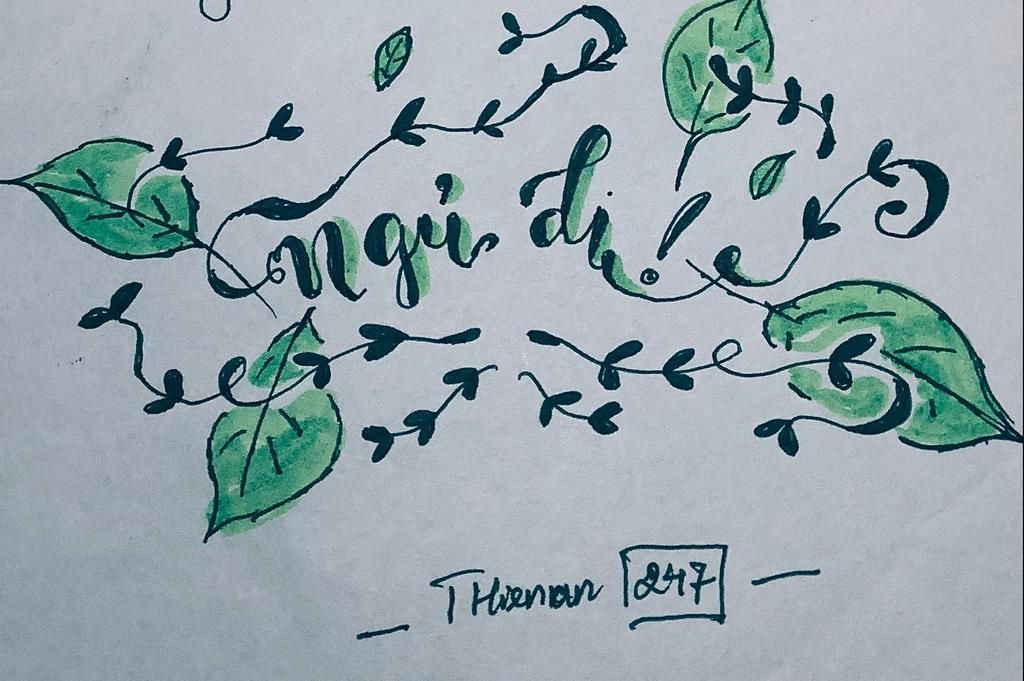 ngủ đi!
THienan 247